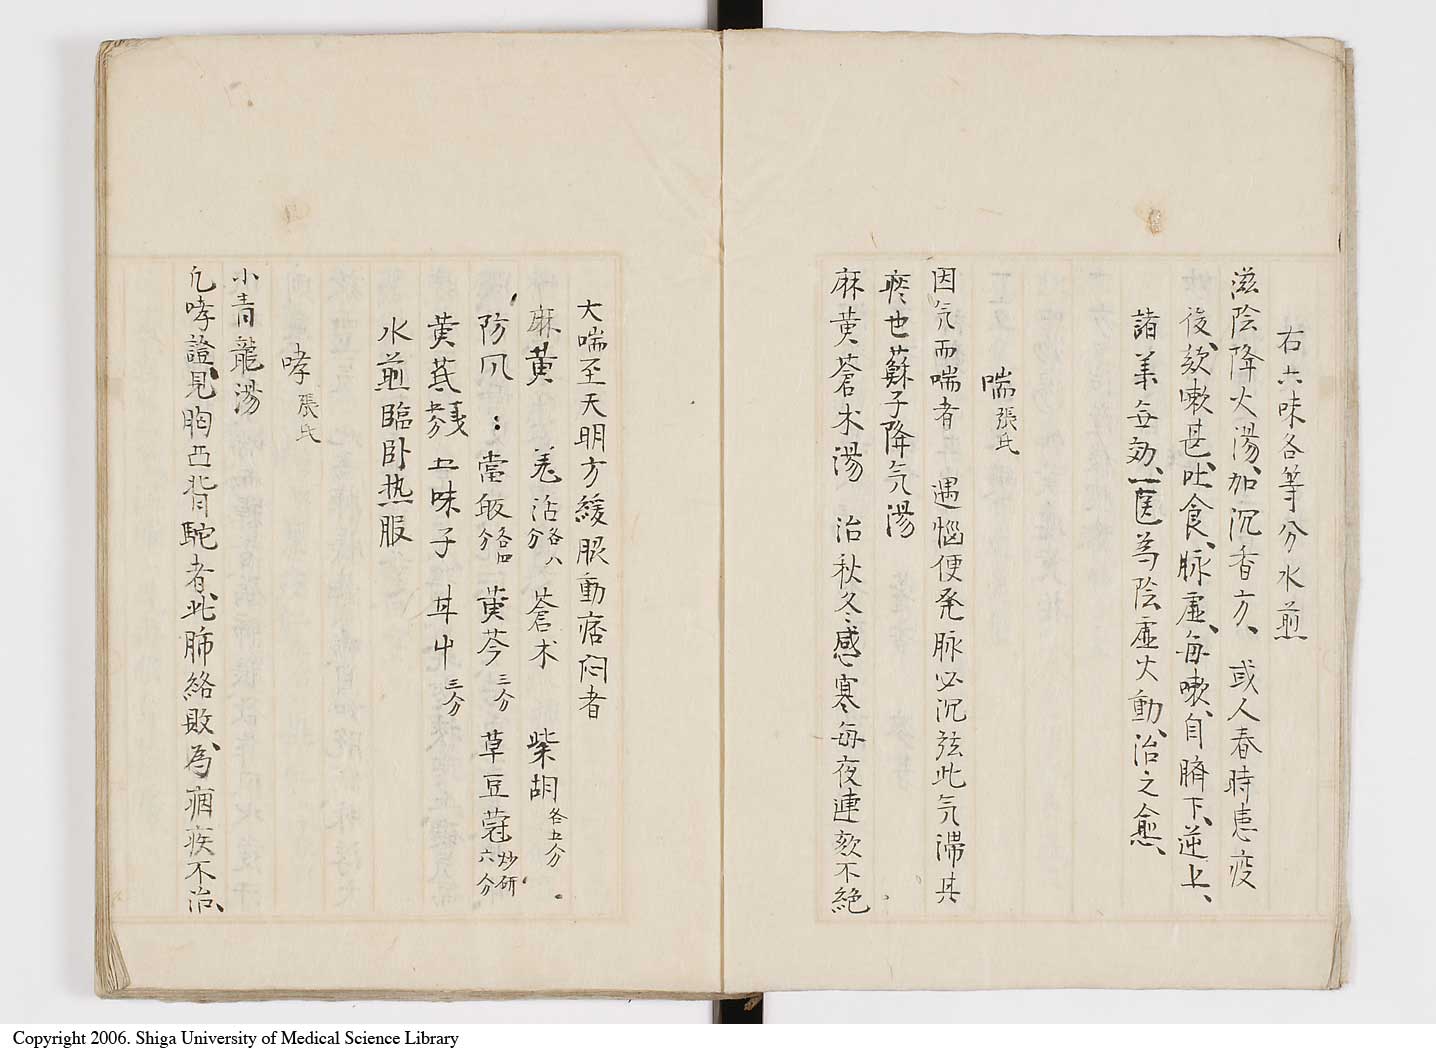 右六味各等分水煎
滋陰降火湯、加沉香方、或人春時患疫
後、欬嗽甚、吐食、脉虚、每嗽、自臍下、逆上、
諸薬每効、一医為陰虚火動、治之愈、
喘 張氏
因気而喘者 遇惱便発脉必沉弦此气滯其
痰也蘇子降气湯
麻黄蒼术湯 治秋冬感寒每夜連欬不絶
大喘至天明方緩眠動痞闷者
麻黄 羌活各八分 蒼术 柴胡各五分
防风 當皈各四分 黄芩三分 草豆蔲炒研六分
黄芪 五味子 甘艸三分
水煎臨卧热服
哮 張氏
小青龍湯
凢哮證、見胸凸背駝者、此肺絡敗、為痼疾不治、
Copyright 2006. Shiga University of Medical Science Library